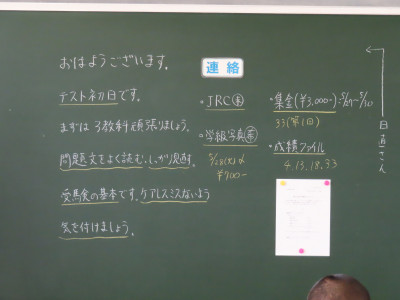 おはようございます。
テスト初日です。
まずは3教科頑張りましょう。
問題文をよく読む、しっかり見直す。
受験の基本です。ケアレスミスないよう
気を付けましょう。
連絡
・JRC
・学級写真
¥700-
・集金(¥3,000-)
33(第1回)
・成績ファイル
4.13.18.33
日直さん